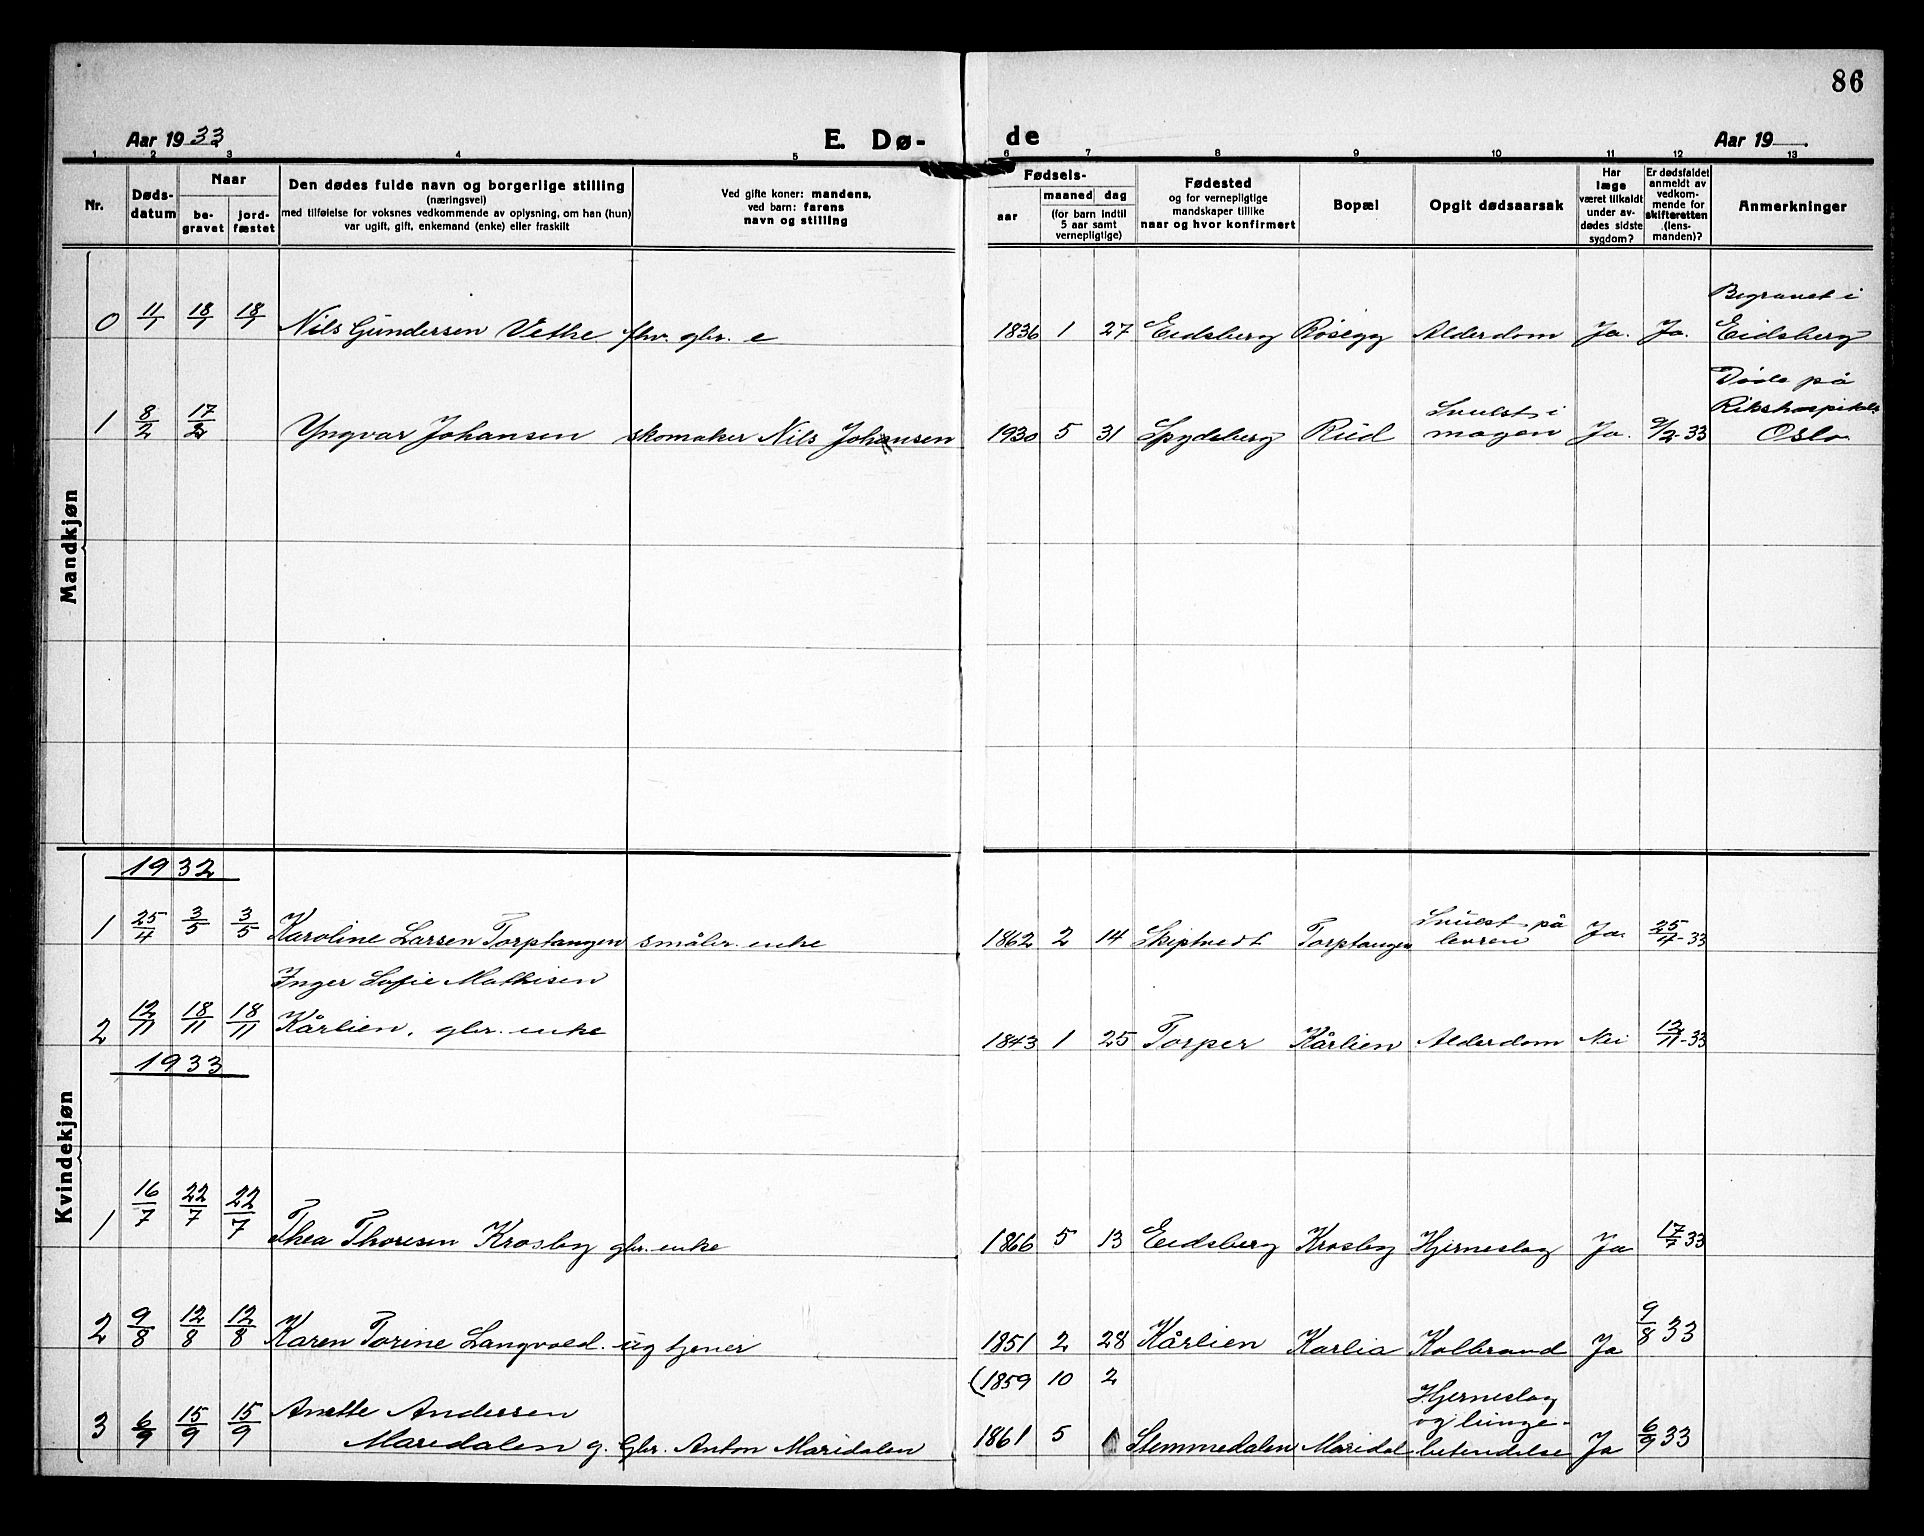 86
Aar 1933
E. Dø-
de
Aar 19
1 2 3 4 5 6 7 8 9 10 11 12 13
Nr.
Døds-
datum
Naar
be-
gravet
jord-
fæstet
Den dødes fulde navn og borgerlige stilling
(næringsvei)
med tilføielse for voksnes vedkommende av oplysning, om han (hun)
var ugift, gift, enkemand (enke) eller fraskilt
Ved gifte koner: mandens,
ved barn: farens
navn og stilling
Fødsels-
aar
maaned dag
(for barn indtil
5 aar samt
vernepligtige)
Fødested
og for vernepligtige
mandskaper tillike
naar og hvor konfirmert
Bopæl
Opgit dødsaarsak
Har
læge
været tilkaldt
under av-
dødes sidste
sygdom?
Er dødsfaldet
anmeldt av
vedkom-
mende for
skifteretten
(lens-
manden)?
Anmerkninger
Mandkjøn
0 11/1 18/1 18/1 Nils Gundersen Vethe fhv. gbr. e 1836 1 27 Eidsberg Røsegg Alderdom Ja. Ja. Begravet i
Eidsberg
1 8/2 17/2 Yngvar Johansen skomaker Nils Johansen 1930 5 31 Spydeberg Rud Svulst i
magen Ja. 9/2-33 Døde på
Rikshospitalet
Oslo
Kvindekjøn
1932
1 25/4 3/5 3/5 Karoline Larsen Torptangen småbr. enke 1862 2 14 Skiptvedt Torptangen Svulst på
levren Ja. 25/4-33
Inger Sofie Mathisen
2 12/11 18/11 18/11 Kårlien, gbr. enke 1843 1 25 Torper Kårlien Alderdom Nei 12/11-33
1933
1 16/7 22/7 22/7 Thea Thoresen Krosby gbr. enke 1866 5 13 Eidsberg Krosby Hjerneslag Ja 17/7 33
2 9/8 12/8 12/8 Karen Torine Langvold. ug tjener 1851 2 28 Kårlien Karlia Kolbrand Ja 9/8 33
(1859 10 2
3 6/9 15/9 15/9 Anette Andersen
Maridalen g. Gbr. Anton Maridalen 1861 5 Stemmedalen Maridal Hjerneslag
og lunge-
betendelse Ja 6/9 33